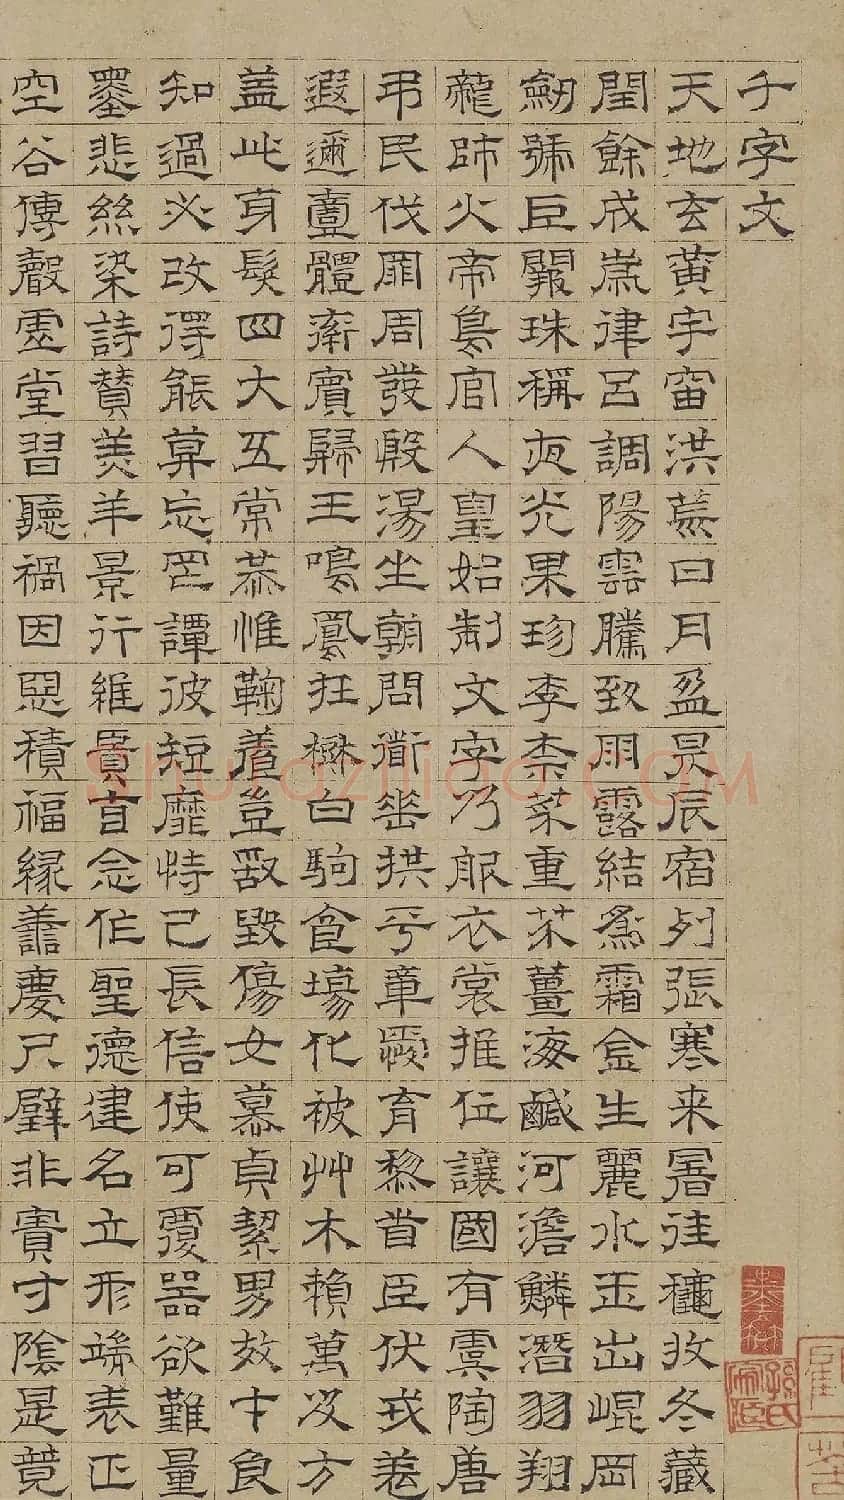 千字文
天地玄黃宇宙洪荒日月盈昃辰宿列張寒来暑往穐收冬藏
閏餘成歲律呂調陽雲騰致雨露結爲霜金生麗水玉出崐岡
劒號巨闕珠稱夜光果珎李柰菜重芥薑海鹹河澹鱗潛羽翔
龍師火帝鳥官人皇始制文字乃服衣裳推位讓國有虞陶唐
弔民伐罪周發殷湯坐朝問道垂拱平章愛育黎首臣伏戎羌
遐邇壹體率賓歸王鳴鳳在樹白駒食場化被艸木賴萬及方
盖此身髮四大五常恭惟鞠養豈敢毀傷女慕貞絜男效才良
知過必改得能莫忘罔譚彼短靡恃己長信使可覆器欲難量
墨悲絲染詩贊羔羊景行維賢克念作聖德建名立形端表正
空谷傳聲虛堂習聽禍因惡積福緣善慶尺璧非寶寸陰是競
shufaziliao.com